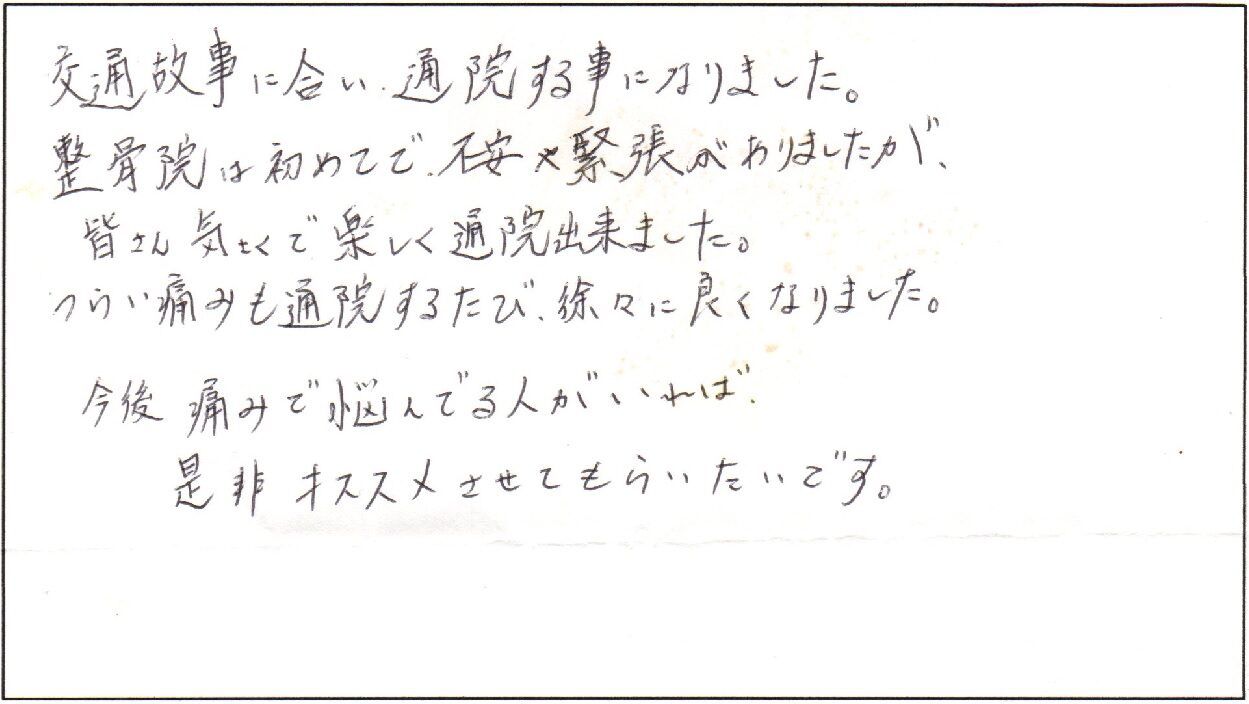 交通故事に合い、通院する事になりました。
整骨院は初めてで、不安や緊張がありましたが、
皆さん気さくで楽しく通院出来ました。
つらい痛みも通院するたび、徐々に良くなりました。
今後 痛みで悩んでる人がいれば、
是非 オススメさせてもらいたいです。